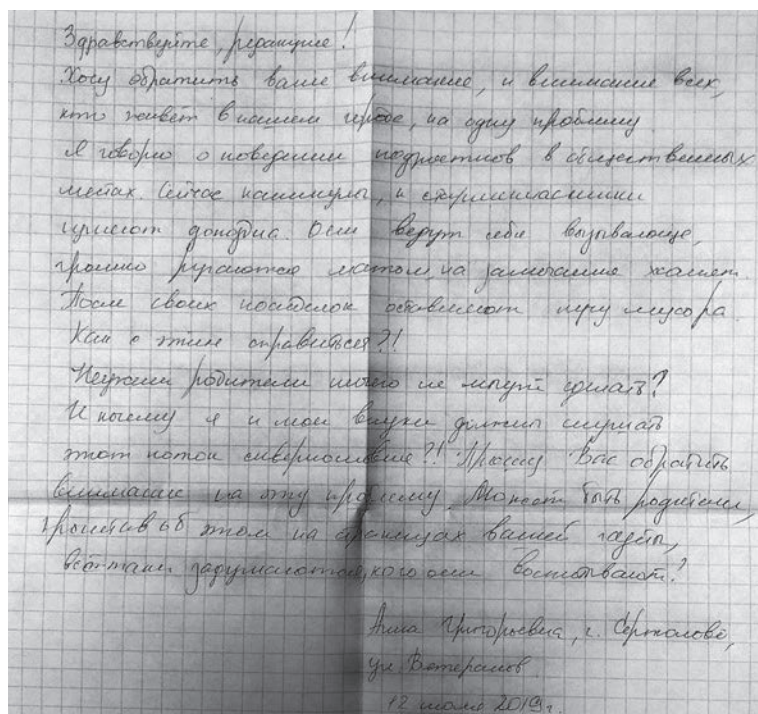 Здравствуйте, редакция!
Хочу обратить ваше внимание, и внимание всех,
кто живёт в нашем городе, на одну проблему.
Я говорю о поведении подростков в общественных
местах. Сейчас каникулы, и старшеклассники
гуляют допоздна. Они ведут себя вызывающе,
громко ругаются матом, на замечание хамят.
После своих посиделок оставляют кучу мусора.
Как с этим справиться?!
Неужели родители ничего не могут сделать?
И почему я и мои внуки должны слушать
этот поток сквернословия?! Прошу Вас обратить
внимание на эту проблему. Может быть родители,
прочитав об этом на страницах вашей газеты,
всё-таки задумаются, кого они воспитывают?
Анна Григорьевна, г. Сертолово,
ул. Ветеранов.
12 июля 2019 г.